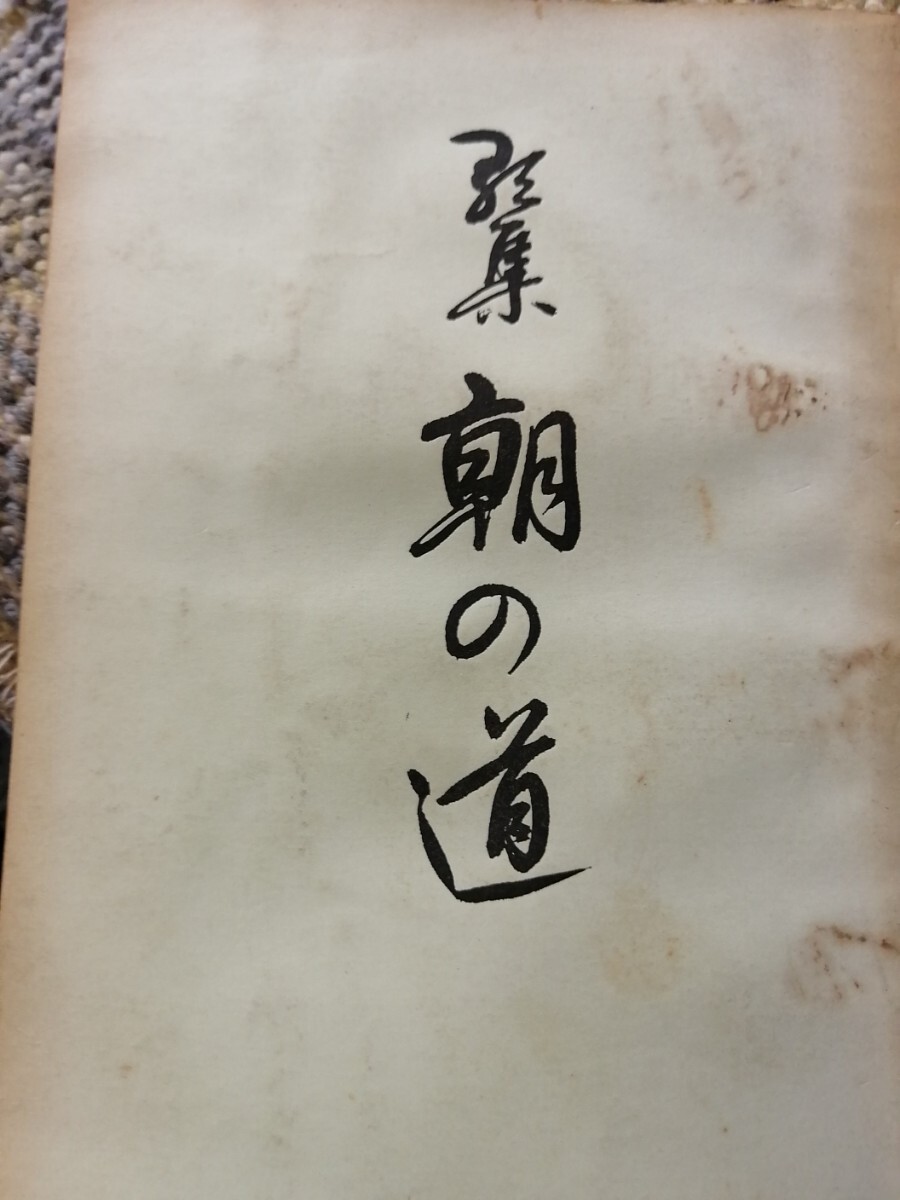 歌集 朝の道